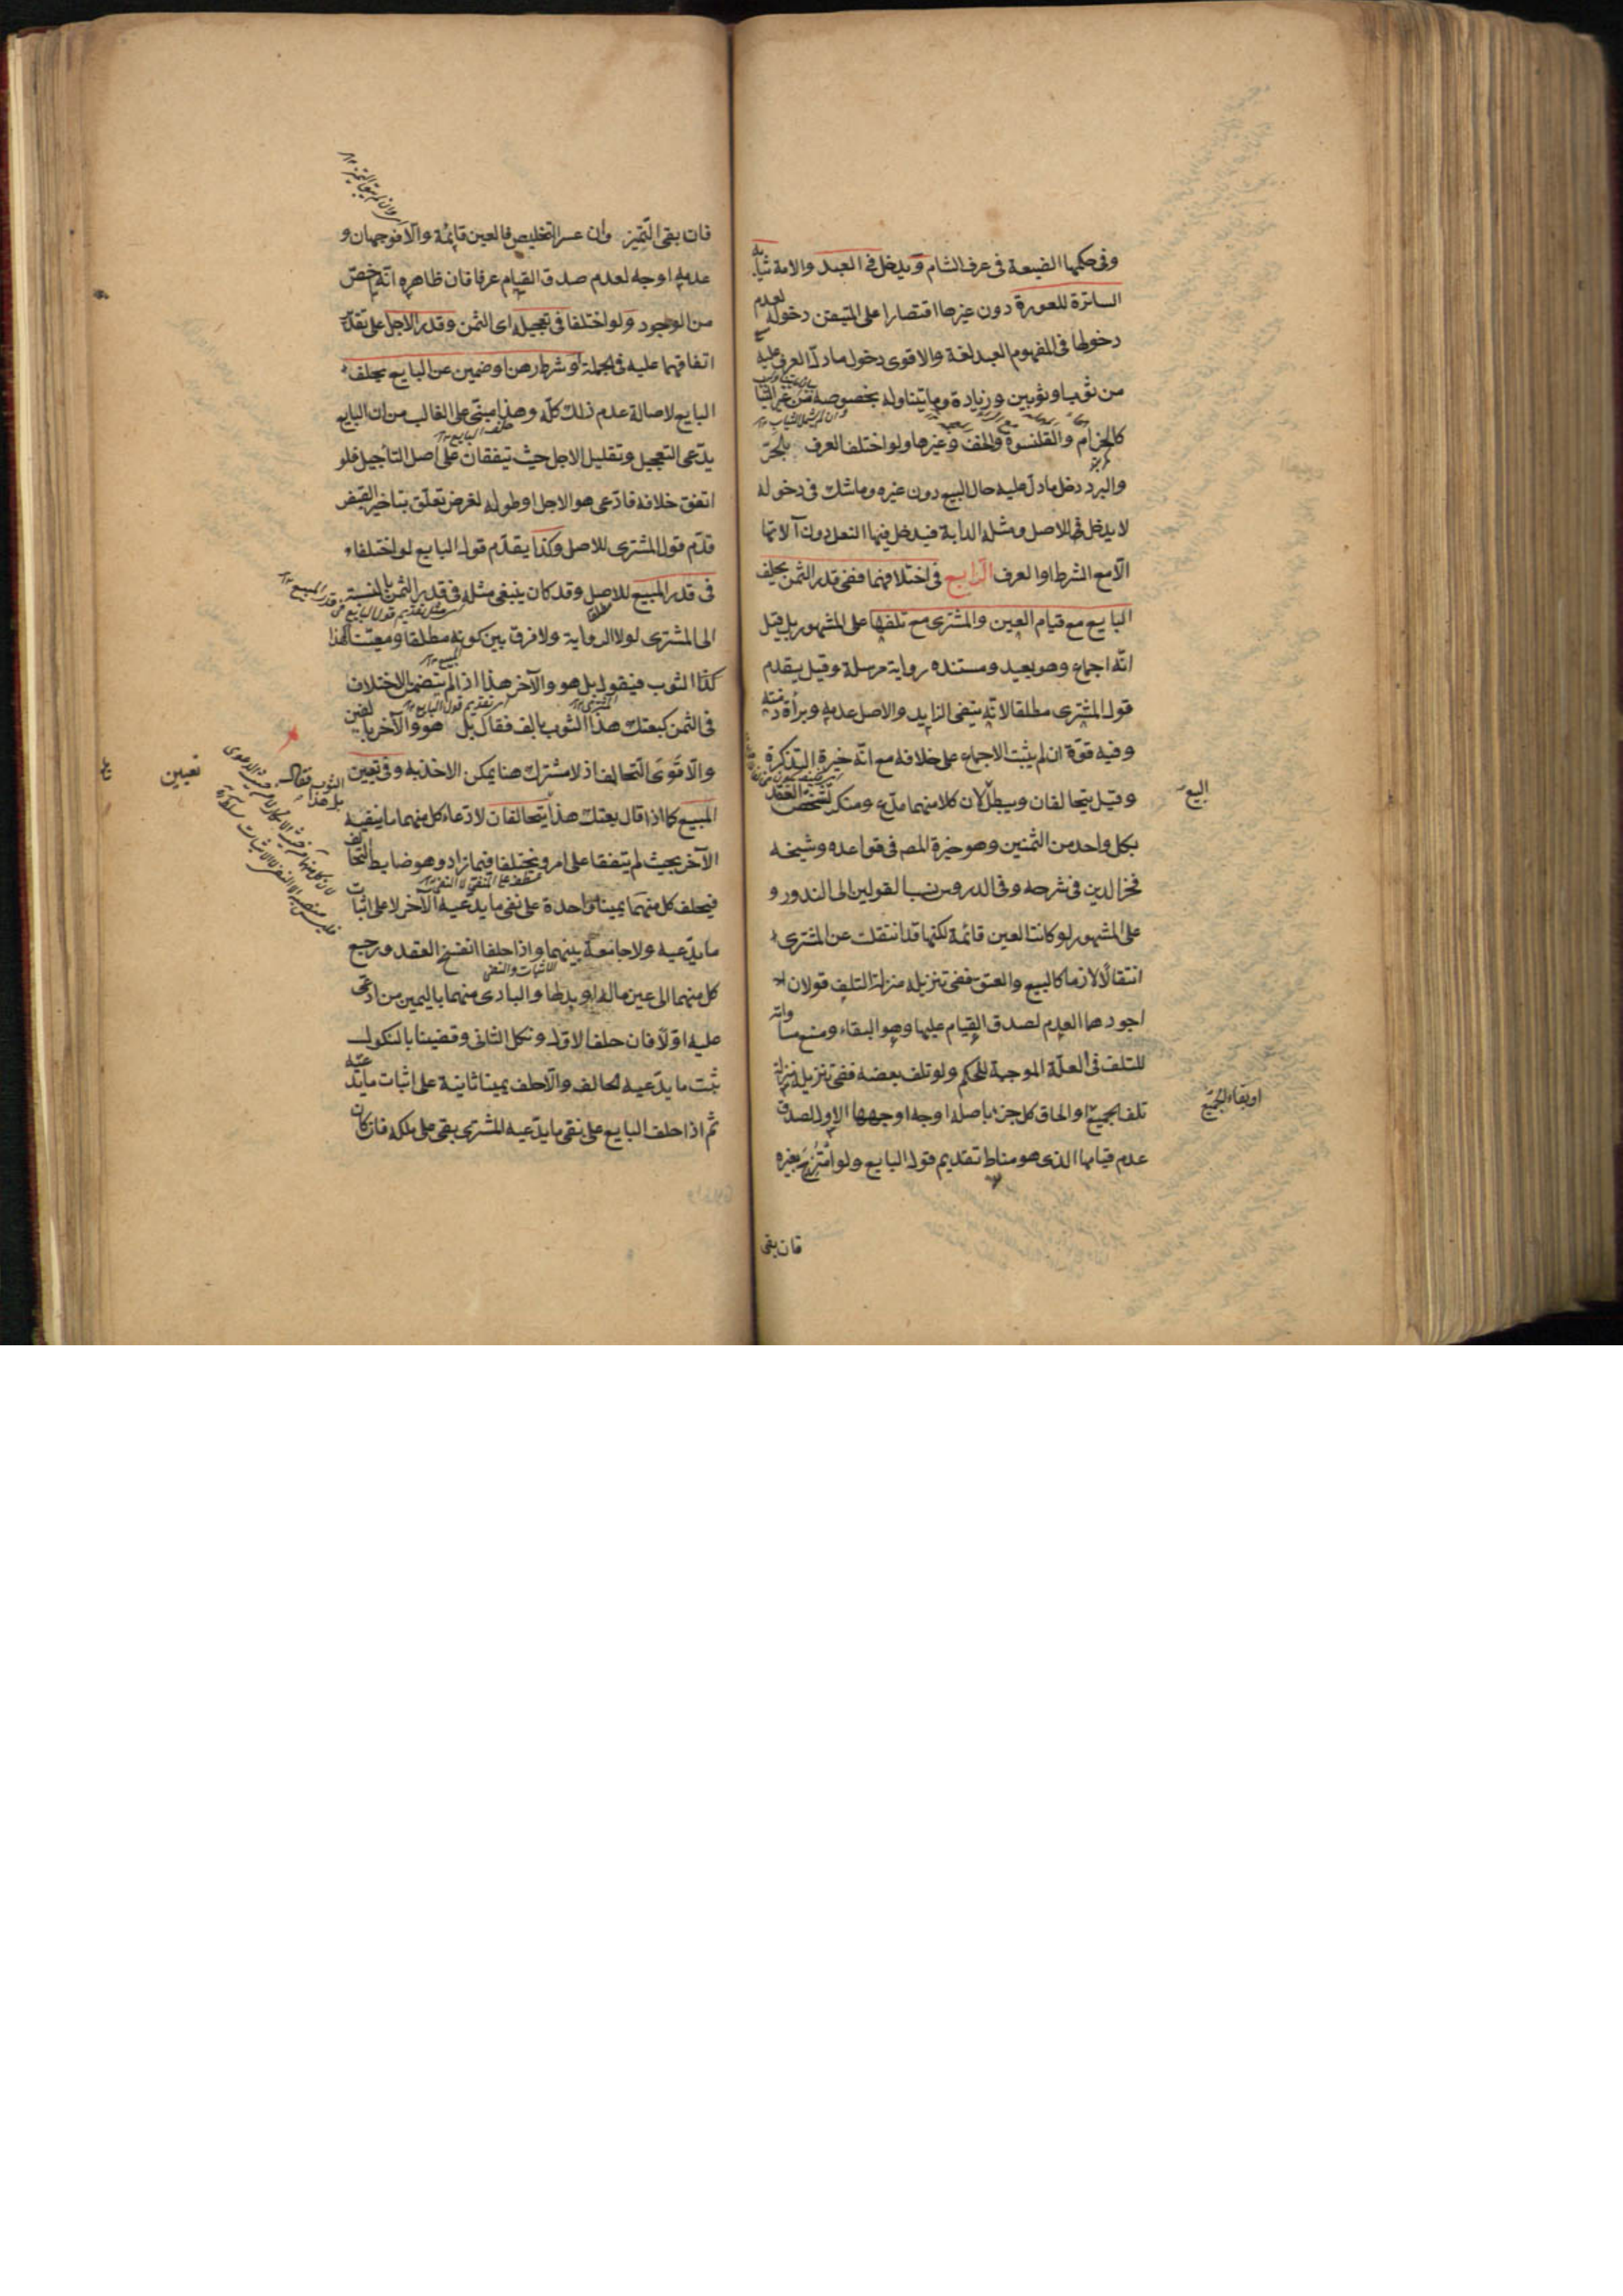 وفى حكمها الضيعة فى عرف الشام ويدخل فى العبد والامة ثيابه
الساترة للعورة دون غيرها اقتصارا على المتيقن دخوله لعدم
دخولها فى المفهوم العبد لغة والاقوى دخول ما دلّ العرف عليه
من ثوب او ثوبين وزيادة وما يتناوله بخصوصه من غير الثياب
كالحزام والقلنسوة والخف وغيرها ولو اختلف العرف بالحرّ
والبرد دخل ما دلّ عليه حال البيع دون غيره وما شك فى دخوله
لا يدخل للاصل ومثله الدابة فيدخل فيها النعل دون آلاتها
الّا مع الشرط او العرف الرّابع فى اختلافهما ففى قدر الثمن يحلف
البايع مع قيام العين والمشترى مع تلفها على المشهور بل قيل
انّه اجماع وهو بعيد ومستنده رواية مرسلة وقيل يقدم
قول المشترى مطلقا لانّه ينفى الزايد والاصل عدمه وبرأة ذمته
وفيه قوّة ان لم يثبت الاجماع على خلافه مع انّه خيرة التذكرة
وقيل يتحالفان ويبطل لان كلا منهما مدّع ومنكر لتشخص العقد
البيع
بكل واحد من الثمنين وهو خيرة المص فى قواعده وشيخه
فخر الدين فى شرحه وفى الدروس نسب القولين الى الندور و
على المشهور لو كانت العين قائمة لكنها قد انتقلت عن المشترى
انتقالا لازما كالبيع والعتق ففى تنزيله منزلة التلف قولان
اجودهما العدم لصدق القيام عليها وهو البقاء ومنع مساواته
للتلف فى العلّة الموجبة للحكم ولو تلف بعضه ففى تنزيله منزلة
تلف الجميع او الحاق كل جزء باصله اوجه اوجهها الاول لصدق
او بقاء الجميع
عدم قيامها الذى هو مناط تقديم قول البايع ولو امتزج بغيره
فان بقى
فان بقى التميز وان عسر التخليص فالعين قايمة والّا فوجهان و
عدمه اوجه لعدم صدق القيام عرفا فان ظاهره انّه اخصّ
من الوجود ولو اختلفا فى تعجيله اى الثمن وقدر الاجل على تقدير
اتفاقهما عليه فى الجملة او شرط رهن او ضمين عن البايع يحلف
البايع لاصالة عدم ذلك كلّه وهذا مبنّى على الغالب من ان البايع
يدّعى التعجيل وتقليل الاجل حيث يتفقان على اصل التأجيل فلو
اتفق خلافه فادّعى هو الاجل او طوله لغرض تعلّق بتاخير القبض
قدّم قول المشترى للاصل وكذا يقدّم قول البايع لو اختلفا
فى قدر المبيع للاصل وقد كان ينبغى مثله فى قدر الثمن بالنسبة
الى المشترى لولا الرواية ولا فرق بين كونه مطلقا ومعينا كهذا
كذا الثوب فيقول بل هو والآخر هذا اذا لم يتضمن الاختلاف
فى الثمن كبعتك هذا الثوب بالف فقال بل هو والآخر بالفين
والّا قوى التحالف اذ لا مشترك هنا يمكن الاخذ به وفى تعيين
تعيين
المبيع كما اذا قال بعتك هذا يتحالفان لادّعاء كل منهما ما ينفيه
الثوب فقال
بل هذا
الآخر بحيث لم يتفقا على امر ويختلفا فيما زاد وهو ضابط التحالف
فيحلف كل منهما يمينا واحدة على نفى ما يدّعيه الآخر لا على اثبات
ما يدّعيه ولا جامعة بينهما واذا حلفا انفسخ العقد ورجع
كل منهما الى عين ماله او بدلها والبادى منهما باليمين من ادّعى
عليه اوّلا فان حلف الاول ونكل الثانى وقضينا بالنكول
ثبت ما يدّعيه الحالف والّا حلف يمينا ثانية على اثبات ما يدّعيه
ثم اذا حلف البايع على نفى ما يدّعيه المشترى بقى على ملكه فان كان